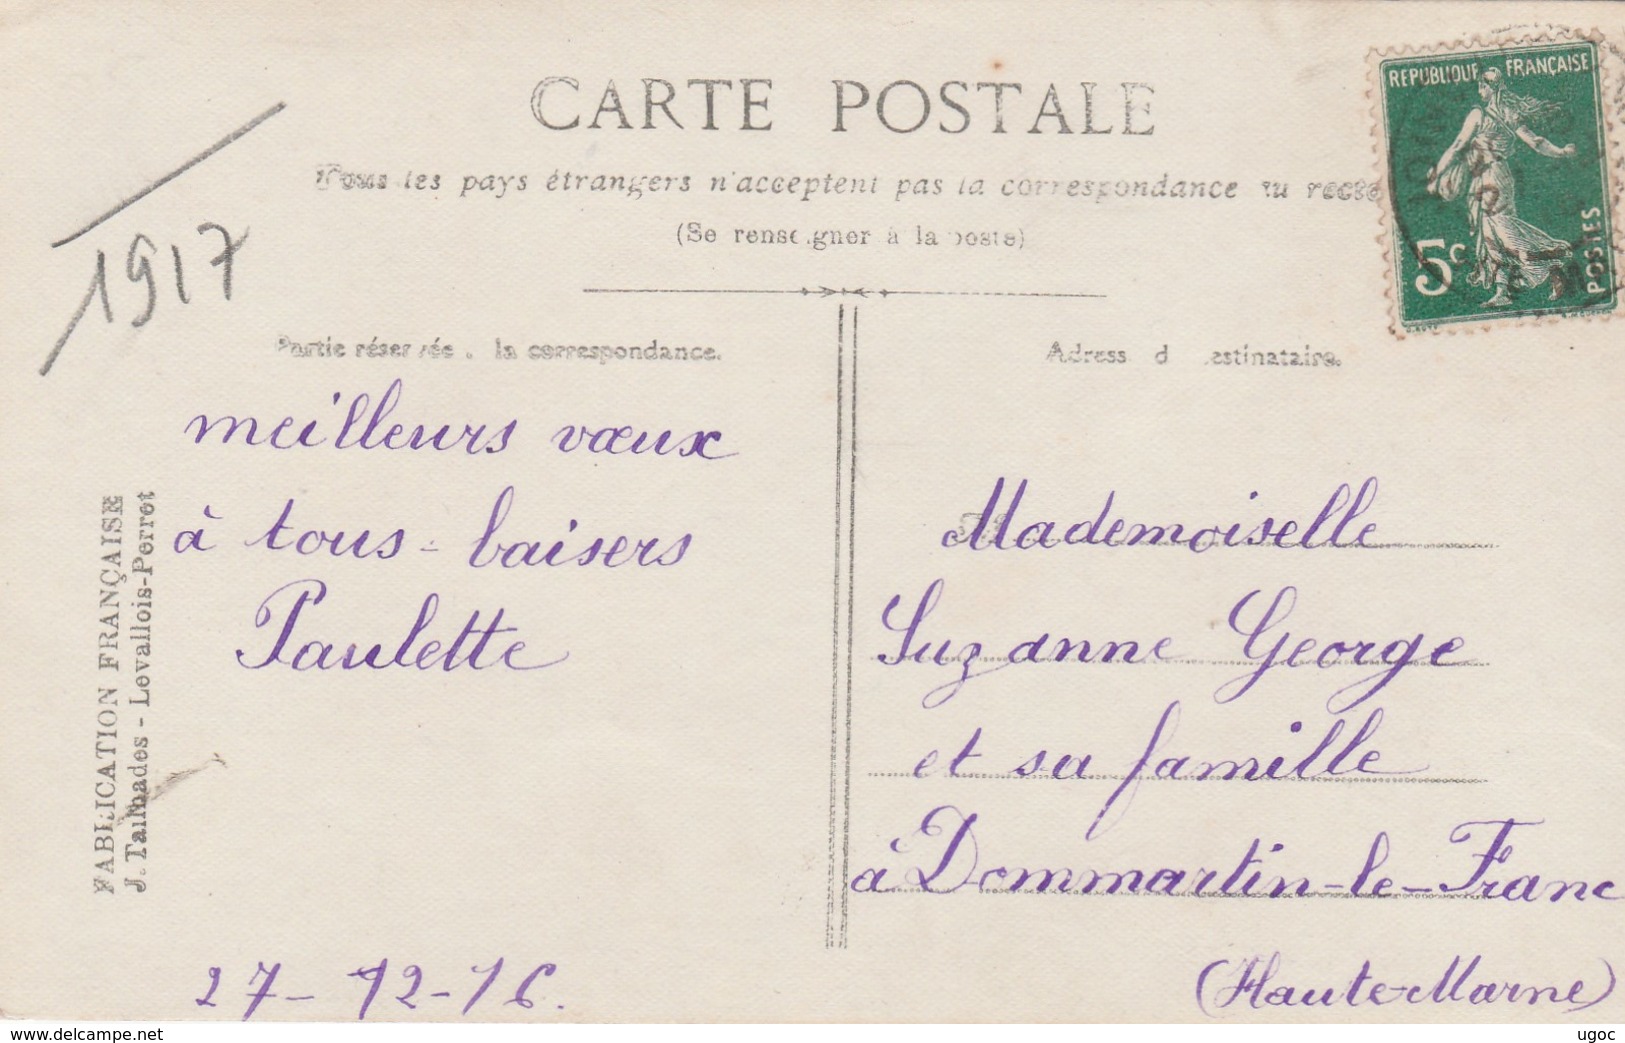 CARTE POSTALE
Tous les pays étrangers n'acceptent pas la correspondance au recto
(Se renseigner à la poste)
REPUBLIQUE FRANÇAISE
5c
POSTES
1917
Partie réservée à la correspondance.
Adresse du destinataire.
meilleurs vœux
à tous - baisers
Paulette
27-12-16.
Mademoiselle
Suzanne George
et sa famille
à Dommartin-le-Franc
(Haute-Marne)
FABRICATION FRANÇAISE
J. Talmades - Levallois-Perret
www.delcampe.net
ugoc